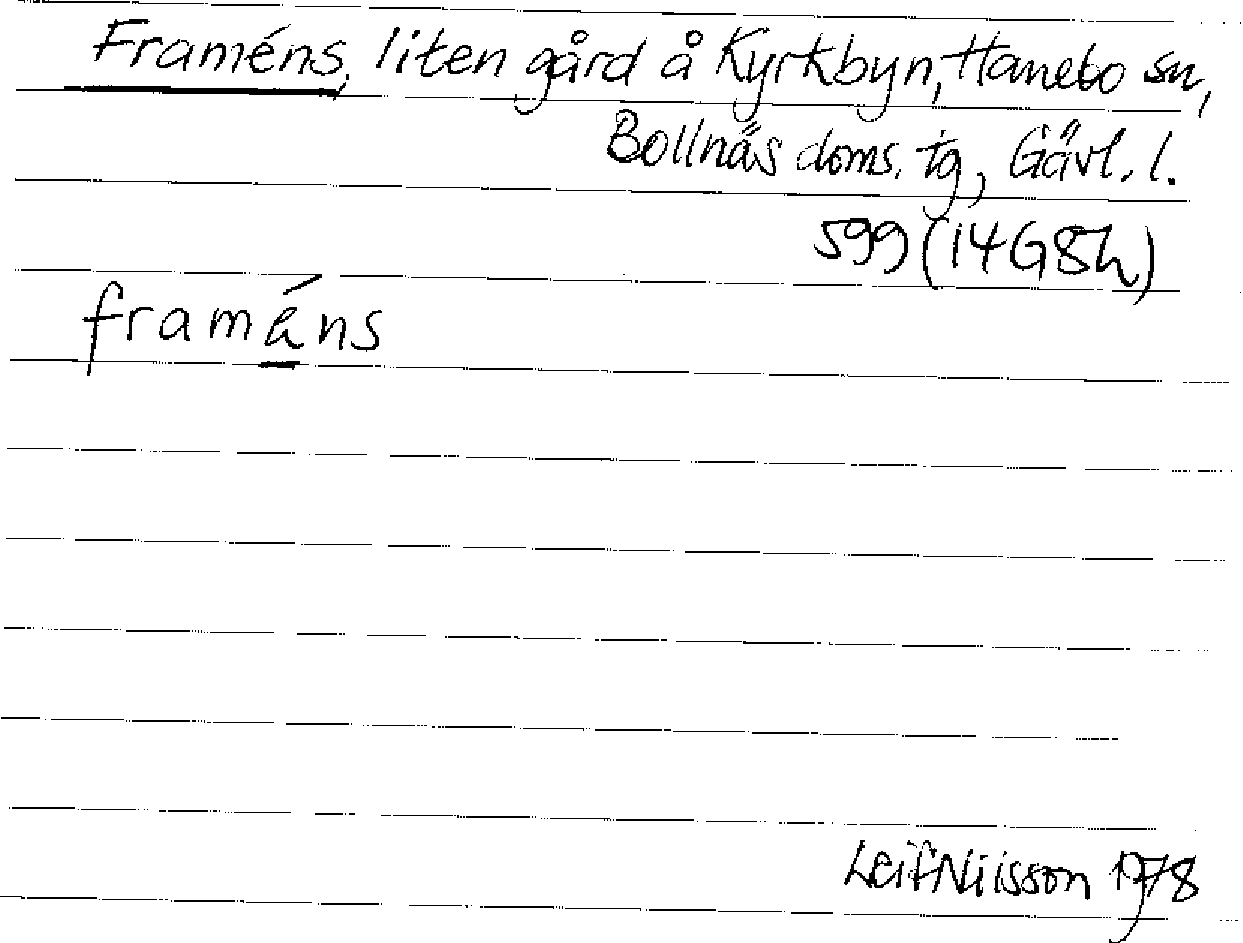 Framéns, liten gård å Kyrkbyn, Hanebo sn,
Bollnäs doms. tg, Gävl. l.
599 (14G8h)
framéns
Leif Nilsson 1978